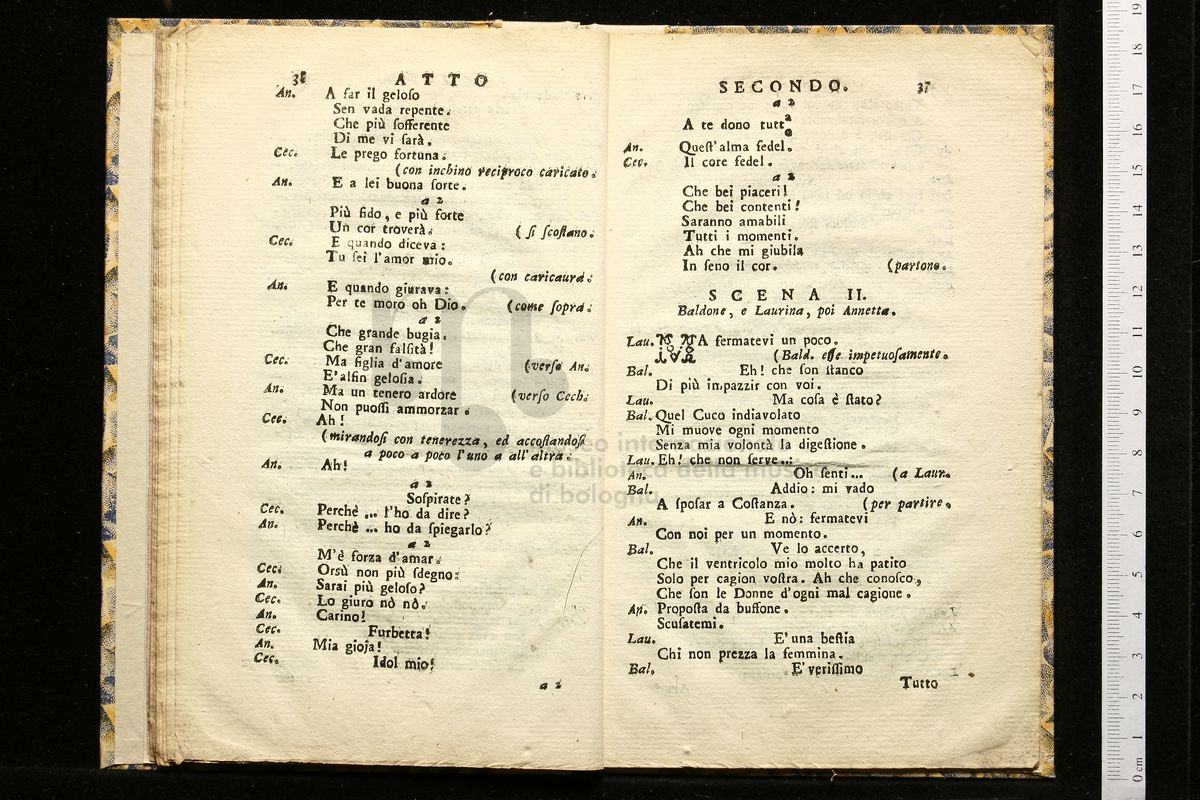 38 ATTO
An. A far il geloso
Sen vada repente.
Che più sofferente
Di me vi sarà.
Cec. Le prego fortuna.
(con inchino reciproco caricato.
An. E a lei buona sorte.
a 2
Più fido, e più forte
Un cor troverà. (si scostano.
Cec. E quando diceva:
Tu sei l'amor mio.
(con caricaura.
An. E quando giurava:
Per te moro oh Dio. (come sopra.
a 2
Che grande bugia.
Che gran falsità!
Cec. Ma figlia d'amore (verso An.
E' alfin gelosia.
An. Ma un tenero ardore (verso Cech.
Non puossi ammorzar.
Cec. Ah!
(mirandosi con tenerezza, ed accostandosi
a poco a poco l'uno a all'altra.
An. Ah!
a 2
Sospirate?
Cec. Perchè ... l'ho da dire?
An. Perchè ... ho da spiegarlo?
a 2
M'è forza d'amar.
Cec. Orsù non più sdegno.
An. Sarai più geloso?
Cec. Lo giuro nò nò.
An. Carino!
Cec. Furbetta!
An. Mia gioja!
Cec. Idol mio!
a 2
SECONDO. 37
a 2
A te dono tutta
o
An. Quest'alma fedel.
Cec. Il core fedel.
a 2
Che bei piaceri!
Che bei contenti!
Saranno amabili
Tutti i momenti.
Ah che mi giubila
In seno il cor. (partono.
SCENA II.
Baldone, e Laurina, poi Annetta.
Lau. MA fermatevi un poco.
(Bald. esse impetuosamente.
Bal. Eh! che son stanco
Di più impazzir con voi.
Lau. Ma cosa è stato?
Bal. Quel Cuco indiavolato
Mi muove ogni momento
Senza mia volontà la digestione.
Lau. Eh! che non serve...
An. Oh senti... (a Laur.
Bal. Addio: mi vado
A sposar a Costanza. (per partire.
An. E nò: fermatevi
Con noi per un momento.
Bal. Ve lo accerto,
Che il ventricolo mio molto ha patito
Solo per cagion vostra. Ah che conosco,
Che son le Donne d'ogni mal cagione.
An. Proposta da buffone.
Scusatemi.
Lau. E' una bestia
Chi non prezza la femmina.
Bal. E' verissimo
Tutto